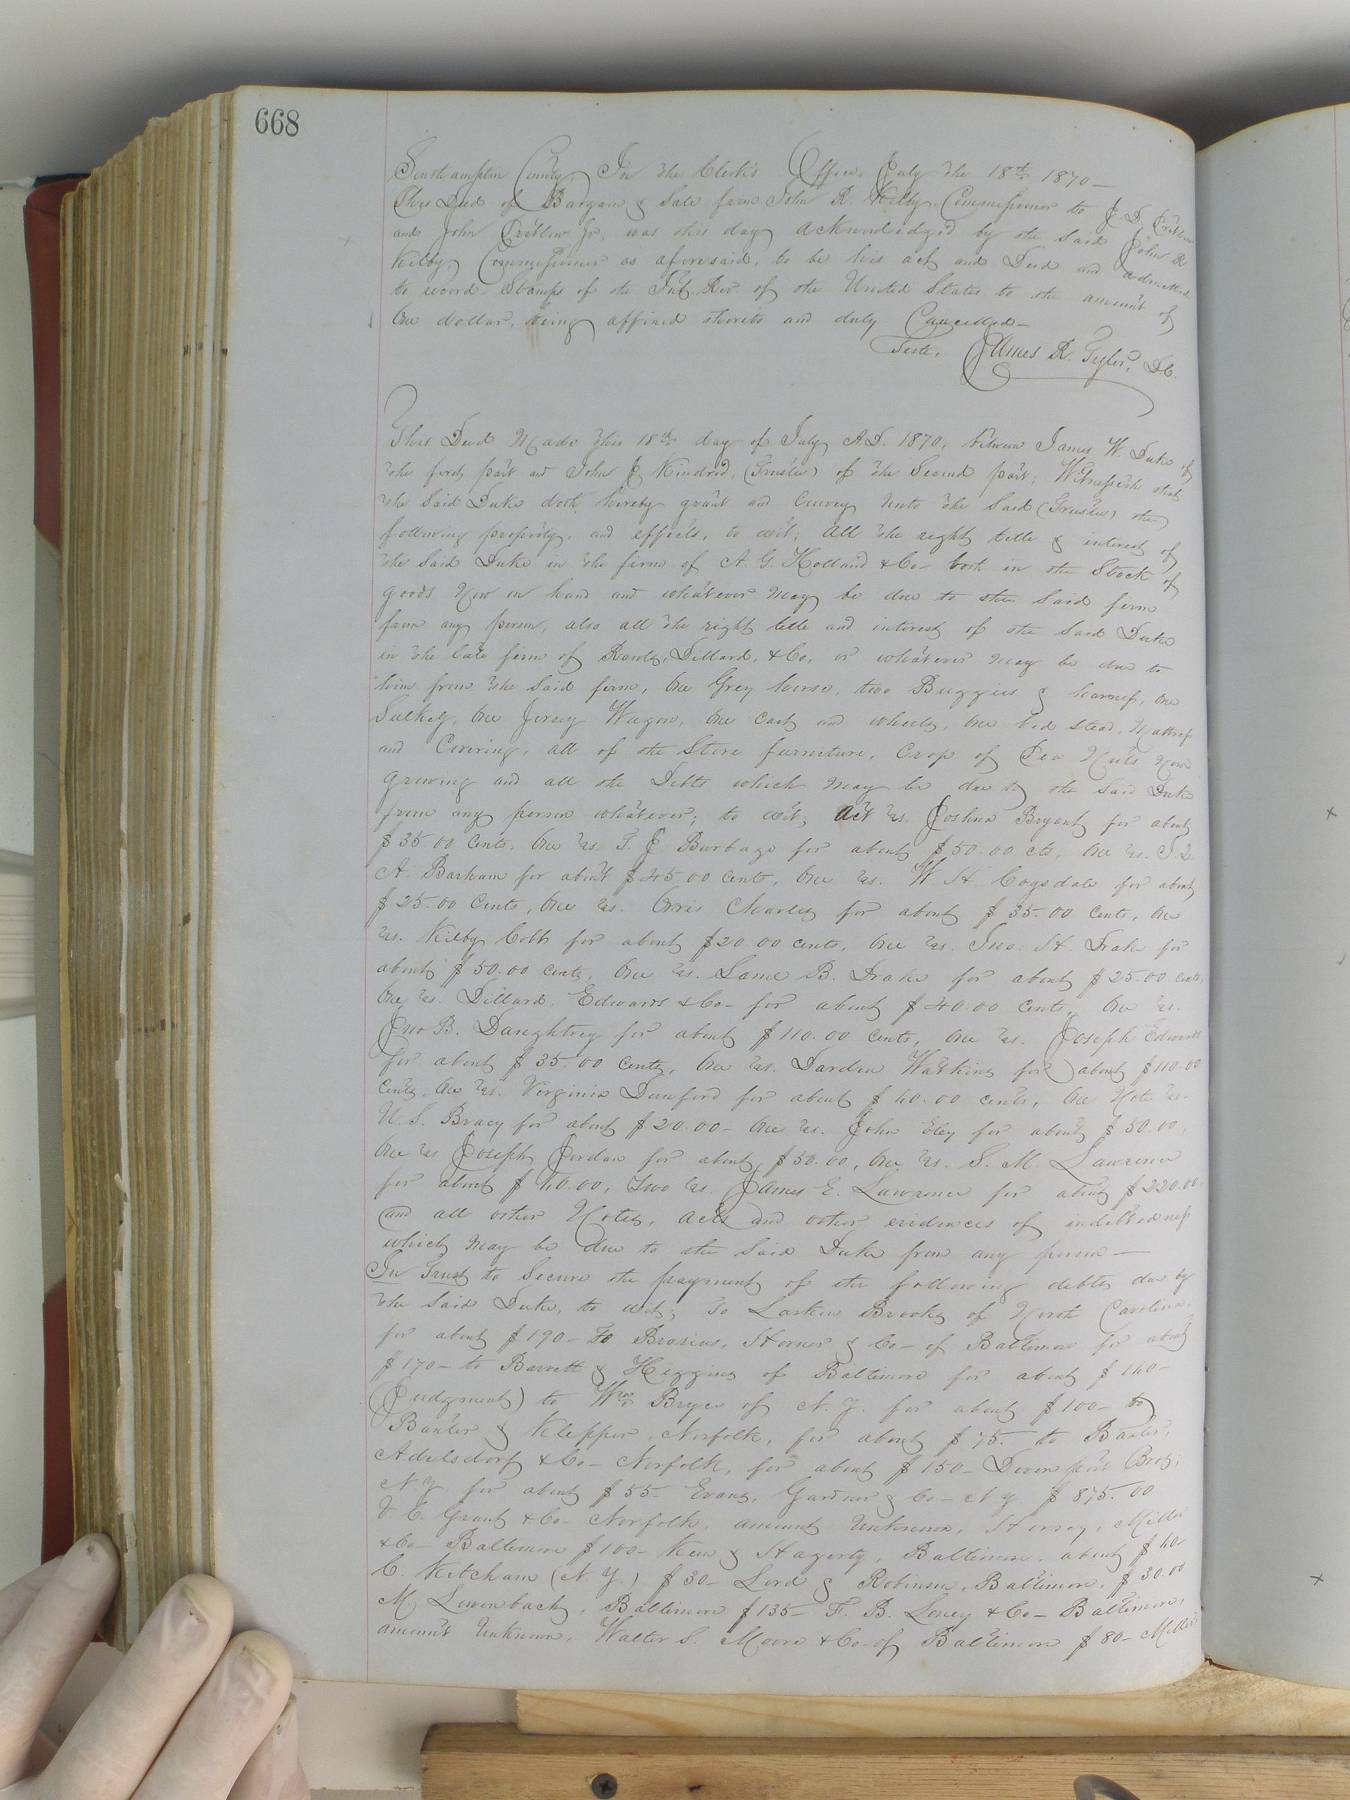 668
Southampton County, In the Clerk's Office, July the 18th 1870—
This Deed of Bargain & Sale from John R. Kilby, Commissioner to J. D. Pretlow
and John Pretlow Jr, was this day acknowledged by the said John R
Kilby, Commissioner as aforesaid, to be his act and Deed and admitted
to record Stamps of the Int. Rev of the United States to the amount of
One dollar, being affixed thereto and duly Cancelled—
Teste, James R. Tyler, D.C.
This Deed Made this 18th day of July A.D. 1870, between James W Duke of
the first part and John J Kindred, (Trustee) of the Second part, Witnesseth that
the Said Duke doth hereby grant and Convey unto the Said (Trustee) the
following property, and effects, to wit, All the right title & interest of
the Said Duke in the firm of A. G. Holland & Co— both in the Stock of
goods Now on hand and whatever may be due to the Said firm
from any person, also all the right title and interest of the Said Duke
in the late firm of Rawls, Dillard, & Co, or whatever may be due to
him from the Said firm, One Grey horse, two Buggies & harness, One
Sulkey, One Jersey Wagon, One Cart and wheels, One bed stead, Mattress
and Covering, all of the Store furniture, Crop of Pea Nuts Now
growing and all the Debts which may be due to the Said Duke
from any person whatever; to wit; Act vs. Joshua Bryant for about
$35.00 Cents. One vs. T. J Burbage for about $50.00 cts, One vs.
A. Barham for about $45.00 Cents, One vs. W H. Cogsdale for about
$25.00 Cents, One vs. Orris Charles for about $35.00 Cents, One
vs. Kilby Cobb for about $20 00 cents, One vs. Jno. H. Drake for
about $50.00 cents, One vs. Lame B. Drake for about $25.00 cents,
One vs. Dillard, Edwards & Co— for about $40.00 Cents, One vs.
Jno B. Daughtrey for about $110.00 Cents, One vs. Joseph Edwards
for about $35.00 Cents, One vs. Darden Watkins for about $110.00
Cents, One vs. Virginia Dunford for about $40.00 cents, One Note vs.
U. S. Bracy for about $20.00— One vs. John Eley for about $50.00,
One vs Joseph Jordan for about $50.00, One vs. S. M. Lawrence
for about $40.00, Two vs. James E. Lawrence for about $220.00,
and all other Notes, acts and other evidences of indebtedness
which may be due to the Said Duke from any person—
In Trust to Secure the payment of the following debts due by
the Said Duke, to wit; To Larkin Brooks of North Carolina,
for about $190— To Brosius, Horner & Co— of Baltimore for about
$170— to Barrett & Higgins of Baltimore for about $140—
(Judgment) to Wm Bryce of N. Y. for about $100— to
Banter & Klepper, Norfolk, for about $75. to Baxter,
Adelsdorf & Co— Norfolk, for about $150— Devenport Bros,
N.Y. for about $55— Evans, Gardner & Co— N Y $875.00
V. C. Grant & Co— Norfolk, amount Unknown, Hersey, Miller
& Co— Baltimore $100— Keen & Hagerty, Baltimore, about $40—
C. Ketcham (N Y.) $30— Lord & Robinson, Baltimore, $30.00
M. Lowenbach, Baltimore $135— F. B. Loney & Co— Baltimore,
amount Unknown, Walter S. Moore & Co— of Baltimore $80— Miller